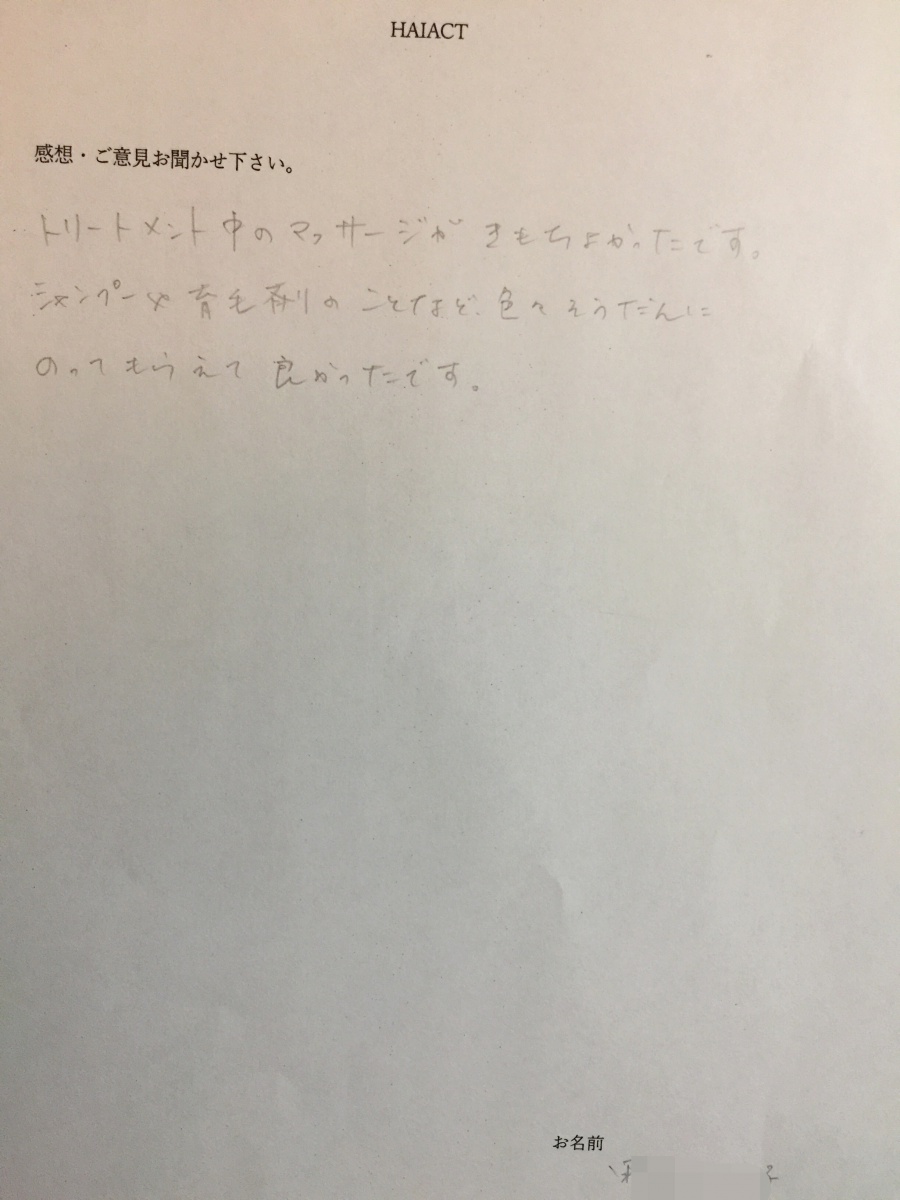 HAIACT
感想・ご意見お聞かせ下さい。
トリートメント中のマッサージがきもちよかったです。
シャンプーや育毛剤のことなど、色々そうだんに
のってもらえて良かったです。
お名前